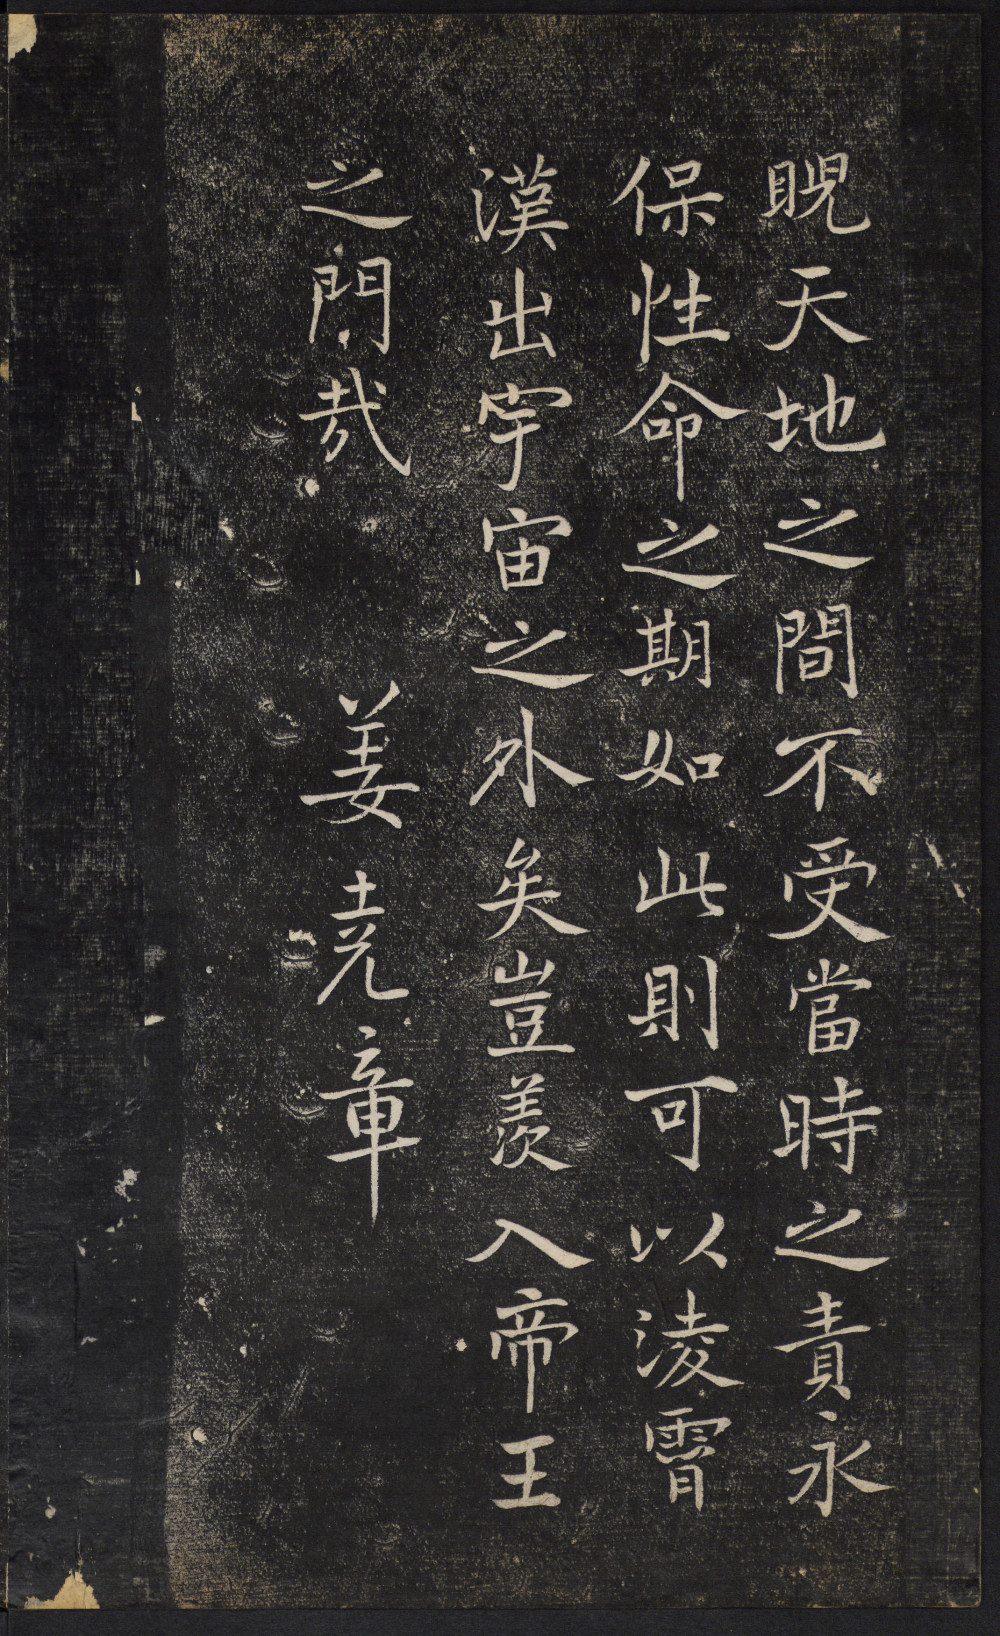 睨天地之間不受當時之責永
保性命之期如此則可以淩霄
漢出宇宙之外矣豈羨入帝王
之門哉　姜堯章